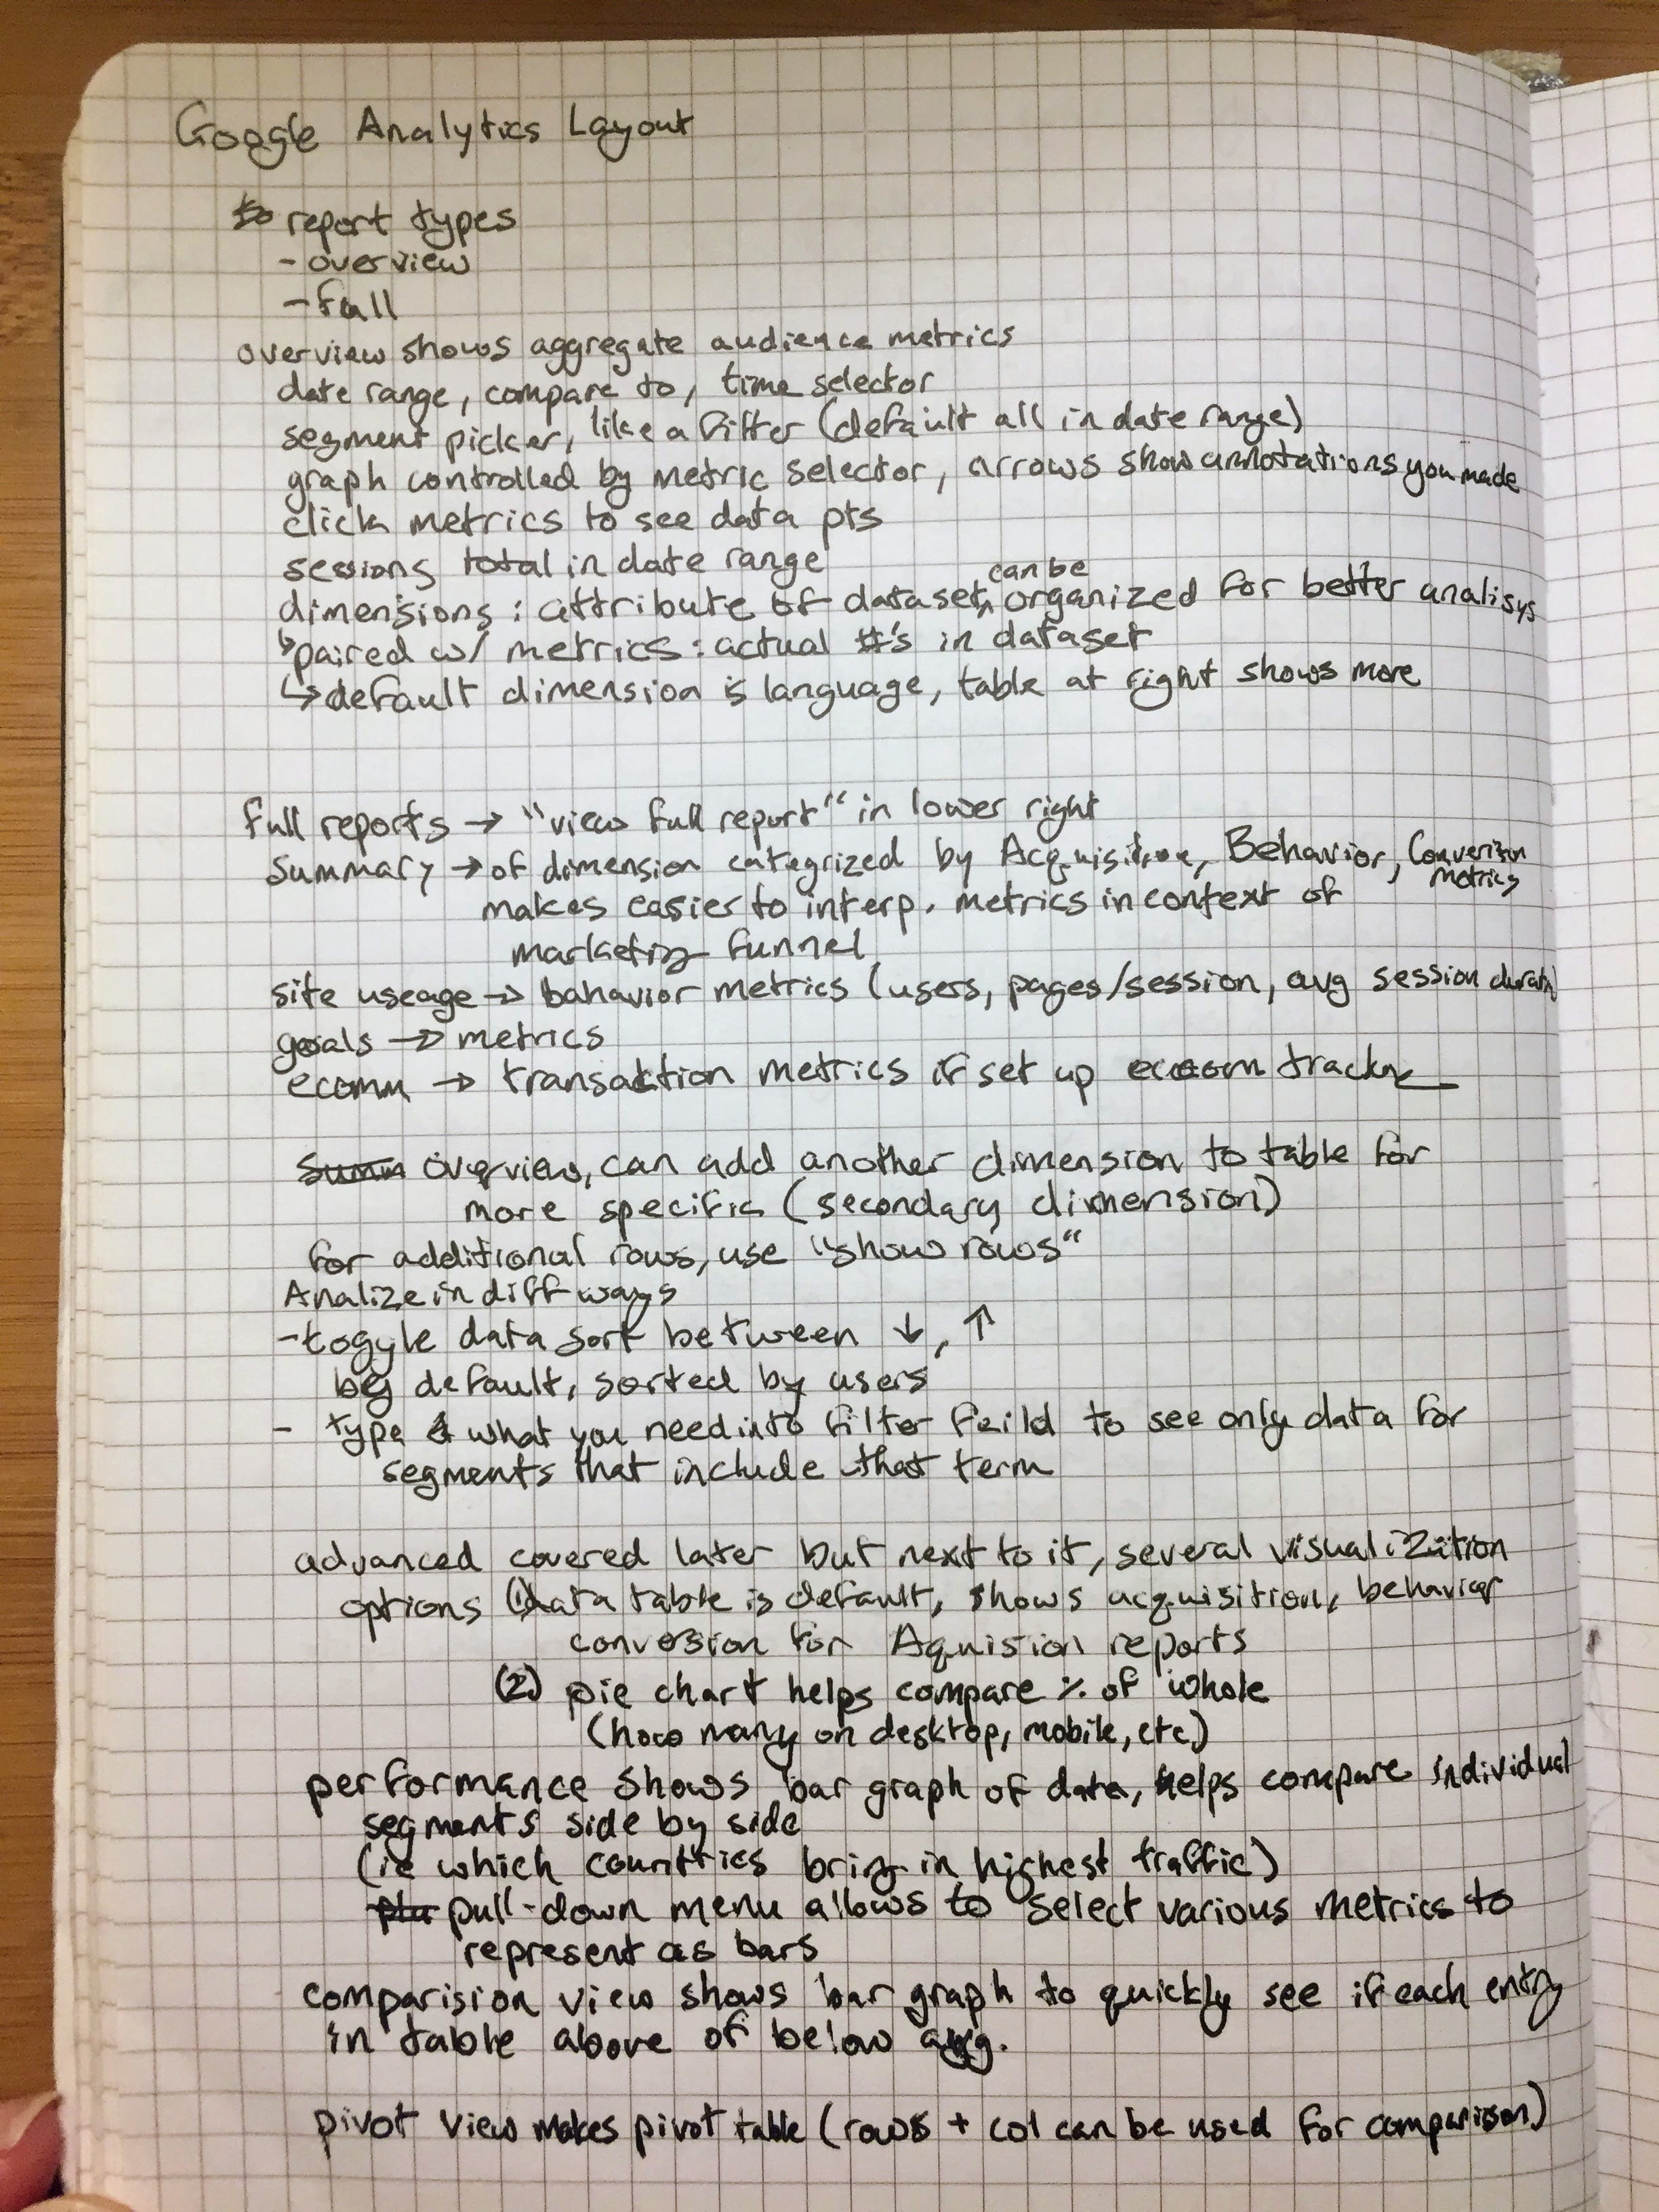 Google Analytics Layout
to report types
- overview
- full
overview shows aggregate audience metrics
date range, compare to, time selector
segment picker, like a filter (default all in date range)
graph controlled by metric selector, arrows show annotations you made
click metrics to see data pts
sessions total in date range
can be
dimensions : attribute of dataset, organized for better analisys
↳ paired w/ metrics : actual #'s in dataset
↳ default dimension is language, table at right shows more
full reports → "view full report" in lower right
Summary → of dimension categrized by Acquisition, Behavior, Conversion
metrics
makes easier to interp. metrics in context of
marketing funnel
site useage → bahavior metrics (users, pages/session, avg session duration)
goals → metrics
ecomm → transaction metrics if set up ecoom tracking
Summ overview, can add another dimension to table for
more specific (secondary dimension)
for additional rows, use "show rows"
Analize in diff ways
- toggle data sort between ↓, ↑
by default, sorted by users
- type what you need into filter feild to see only data for
segments that include that term
advanced covered later but next to it, several visualization
options (1) data table is default, shows acquisition, behavior
conversion for Aquistion reports
(2) pie chart helps compare % of whole
(how many on desktop, mobile, etc)
performance shows bar graph of data, helps compare individual
segments side by side
(ie which countries bring in highest traffic)
pull-down menu allows to select various metrics to
represent as bars
comparision view shows bar graph to quickly see if each entry
in table above of below avg.
pivot view makes pivot table (rows + col can be used for comparison)